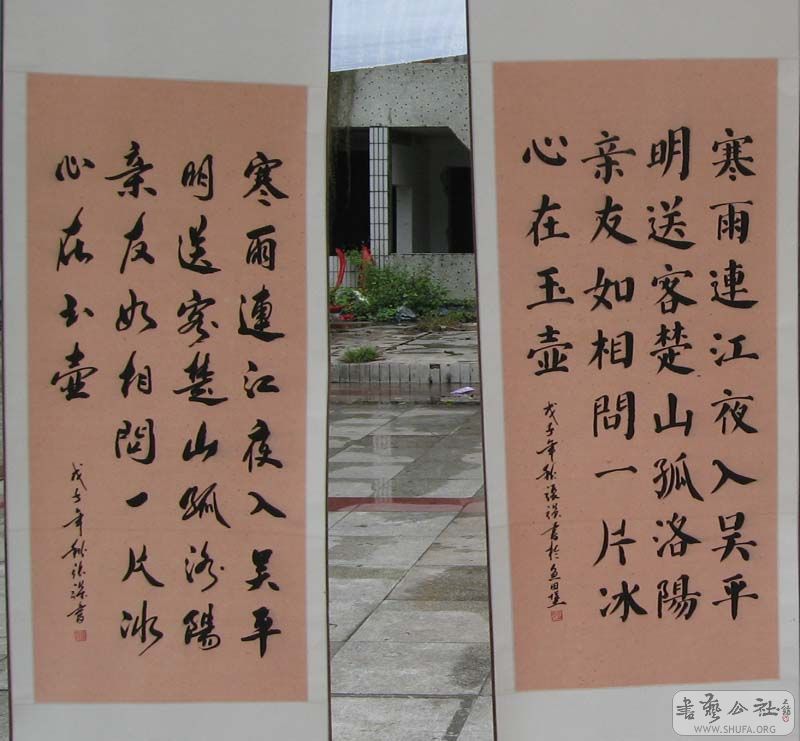 寒雨連江夜入吴平
明送客楚山孤洛陽
亲友如相問一片冰
心在玉壶
戊子年秋 書於鱼田堡
寒雨連江夜入吴平
明送客楚山孤洛陽
亲友如相問一片冰
心在玉壶
戊子年秋 書
書藝公社
WWW.SHUFA.ORG